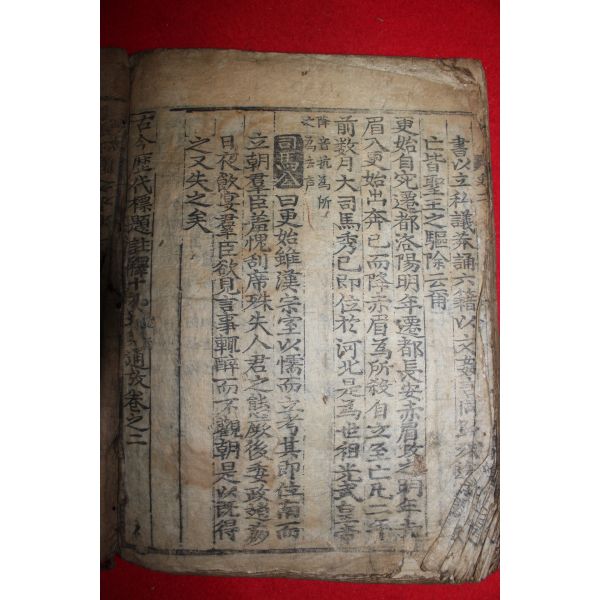 書以立私議莽誦六籍以文姦言同
亡皆聖王之驅除云爾
更始自宛遷都洛陽明年遷都長安赤眉攻之明年赤
眉入更始出奔已而降赤眉為所殺自立至亡凡二年
前数月大司馬秀已即位於河北是為世祖光武皇帝
降音杭為所
之為去声
司馬公曰更始雖漢宗室以懦而立考其即位南面
立朝羣臣羞愧刮席殊失人君之態厥後委政趙萌
日夜飲宴羣臣欲見言事輒醉而不觀朝是以既得
之又失之矣
古今歷代標題註釋十九史略通攷卷之二